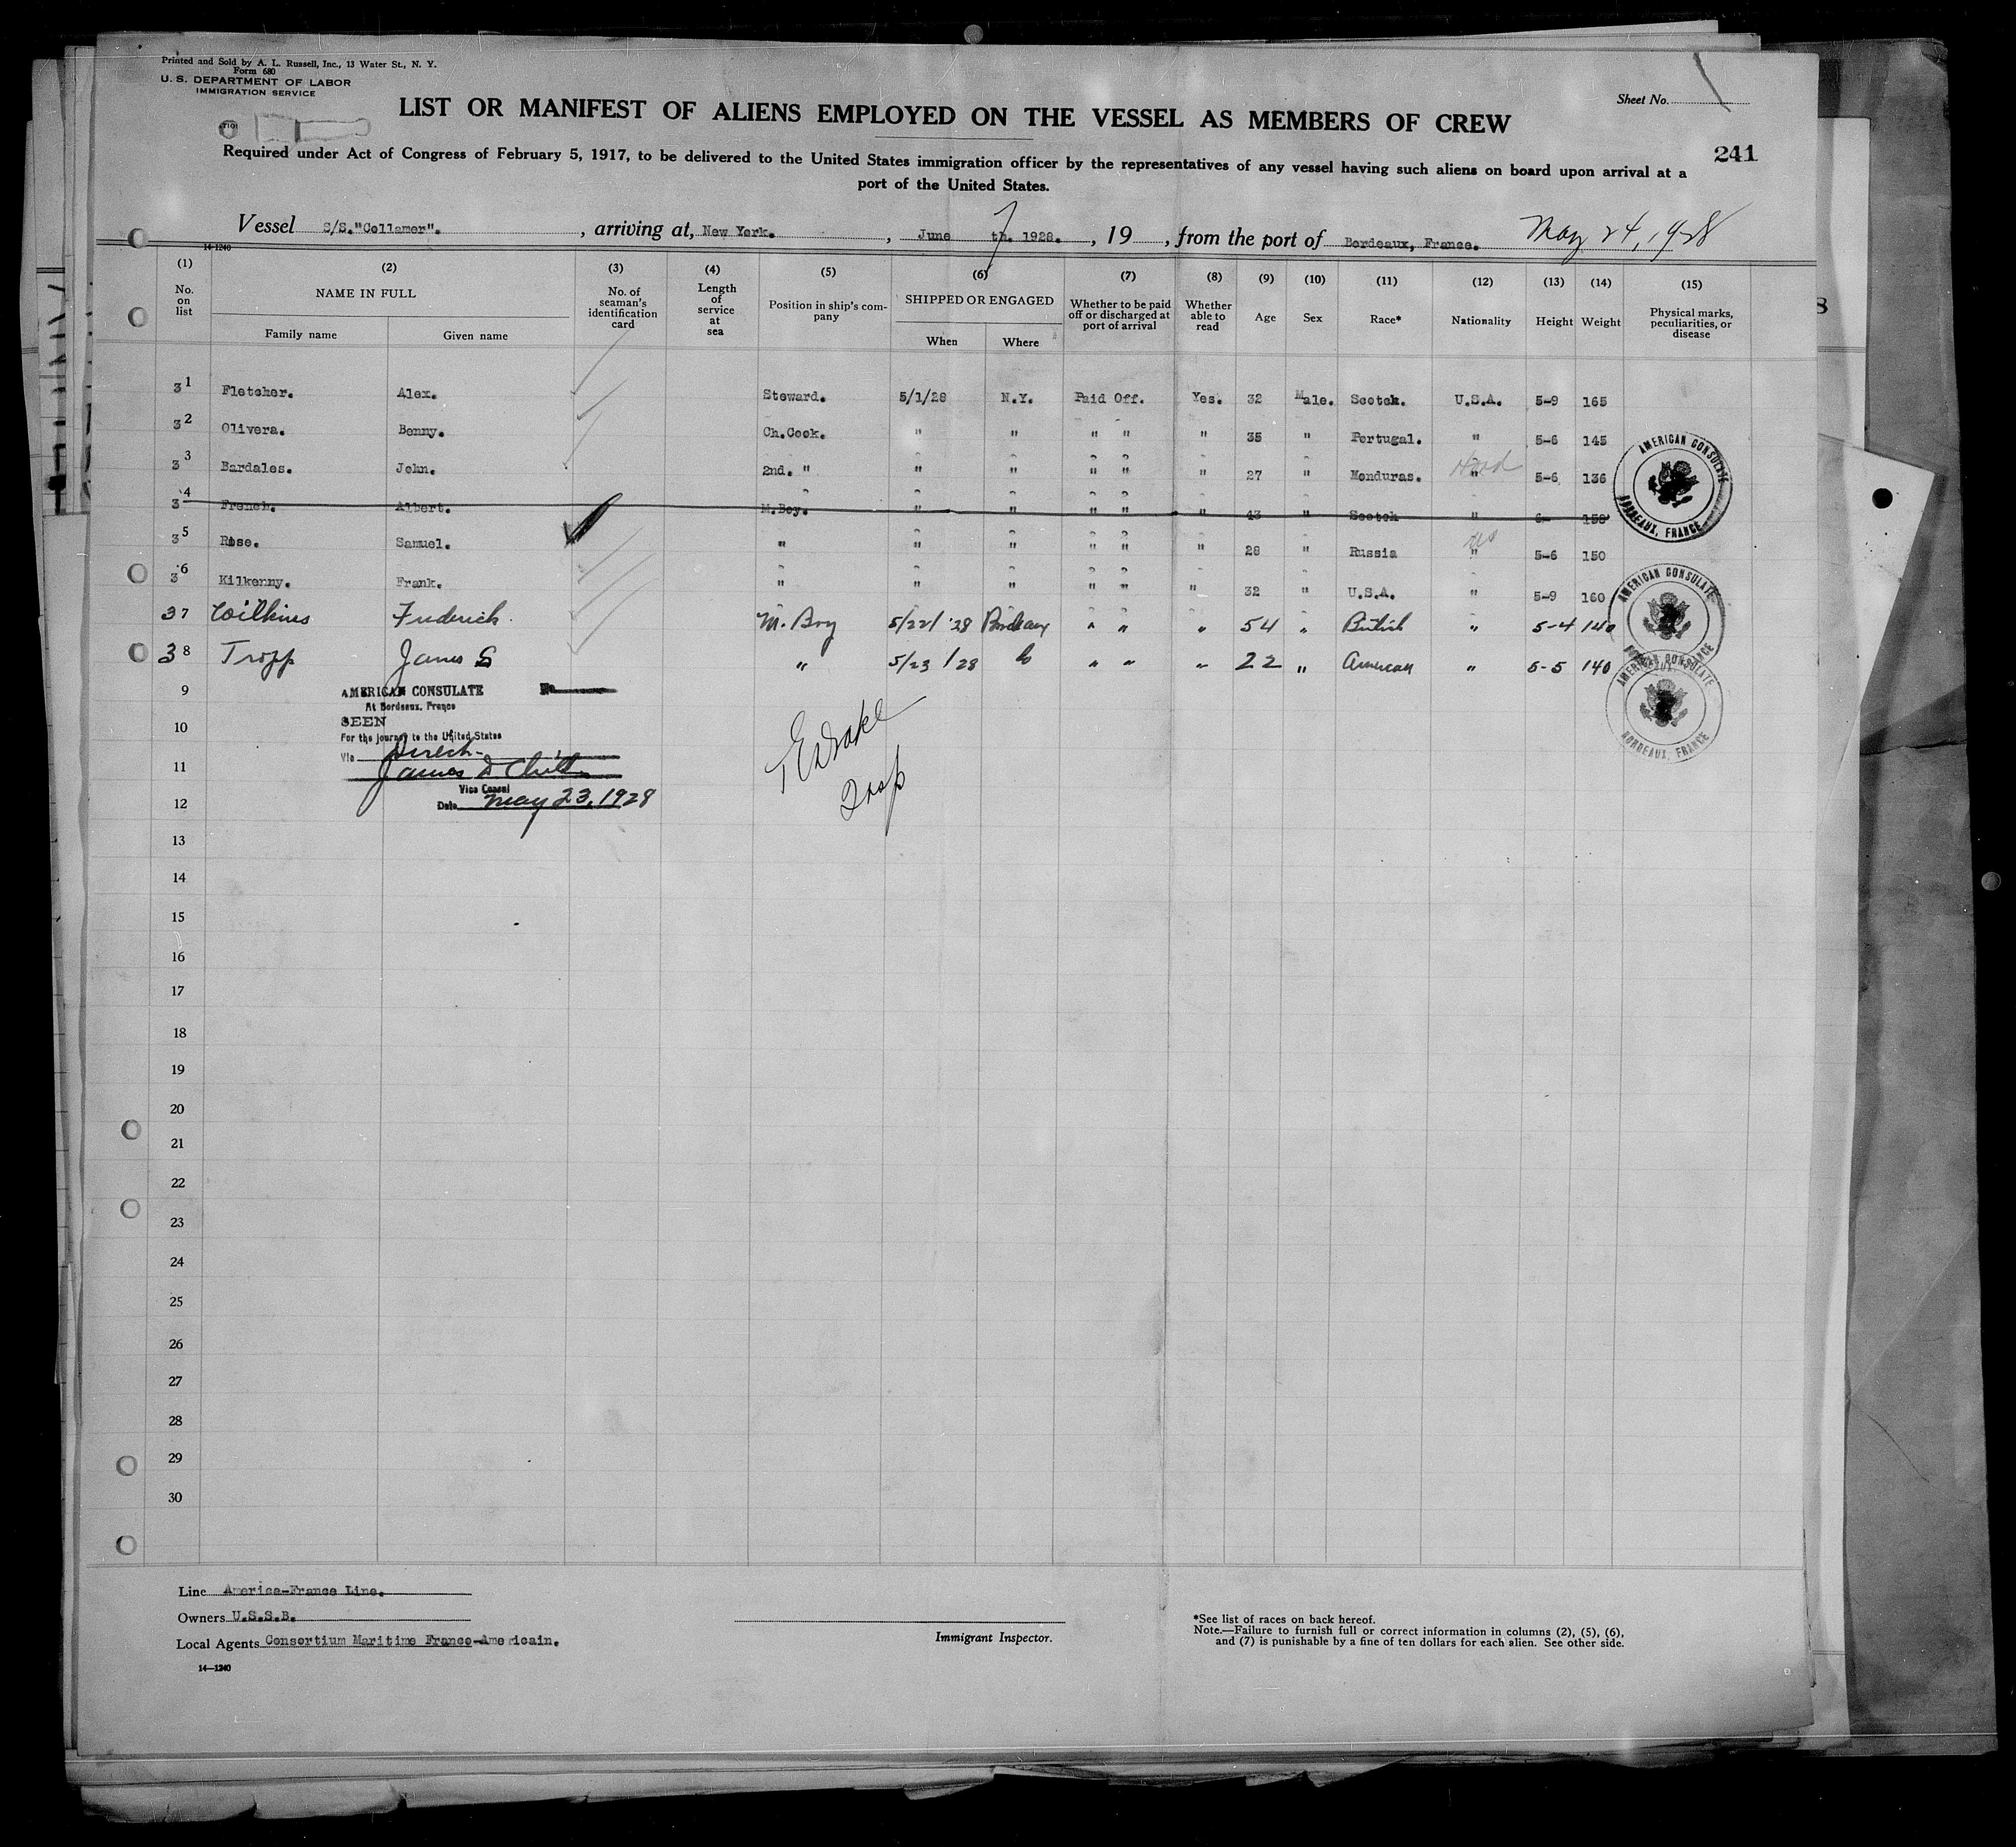 Printed and Sold by A. L. Russell, Inc., 13 Water St., N. Y.
Form 680
U. S. DEPARTMENT OF LABOR
IMMIGRATION SERVICE
Sheet No.
LIST OR MANIFEST OF ALIENS EMPLOYED ON THE VESSEL AS MEMBERS OF CREW
241
Required under Act of Congress of February 5, 1917, to be delivered to the United States immigration officer by the representatives of any vessel having such aliens on board upon arrival at a
port of the United States.
Vessel S/S."Collamer". , arriving at, New York. , June 7 th. 1928. , 19 , from the port of Bordeaux, France. May 24, 1928
14-1240
(1) (2) (3) (4) (5) (6) (7) (8) (9) (10) (11) (12) (13) (14) (15)
No. on list NAME IN FULL Family name Given name No. of seaman's identification card Length of service at sea Position in ship's company SHIPPED OR ENGAGED When Where Whether to be paid off or discharged at port of arrival Whether able to read Age Sex Race* Nationality Height Weight Physical marks, peculiarities, or disease
31 Fletcher. Alex. Steward. 5/1/28 N.Y. Paid Off. Yes. 32 Male. Scotch. U.S.A. 5-9 165
32 Olivera. Benny. Ch.Cook. " " " " " 35 " Portugal. " 5-6 145
33 Bardales. John. 2nd. " " " " " " 27 " Honduras. " 5-6 136
34 French. Albert. M.Boy. " " " " " 43 " Scotch " 6- 150
35 Rose. Samuel. " " " " " " 28 " Russia " us 5-6 150
36 Kilkenny. Frank. " " " " " " 32 " U.S.A. " 5-9 160
37 Wilkins Frederick. M. Boy 5/22/'28 Bordeaux " " " 54 " British " 5-4 140
38 Tropp James S " 5/23/28 do " " " 22 " American " 5-5 140
9
10
11
12
13
14
15
16
17
18
19
20
21
22
23
24
25
26
27
28
29
30
AMERICAN CONSULATE
At Bordeaux, France
SEEN
For the journey to the United States
Via Direct
James D Child
Vice Consul
Date May 23, 1928
AMERICAN CONSULATE
BORDEAUX, FRANCE
AMERICAN CONSULATE
BORDEAUX, FRANCE
AMERICAN CONSULATE
BORDEAUX, FRANCE
Line America-France Line.
Owners U.S.S.B.
Local Agents Consortium Maritime France-Americain.
14—1240
Immigrant Inspector.
*See list of races on back hereof.
Note.—Failure to furnish full or correct information in columns (2), (5), (6),
and (7) is punishable by a fine of ten dollars for each alien. See other side.